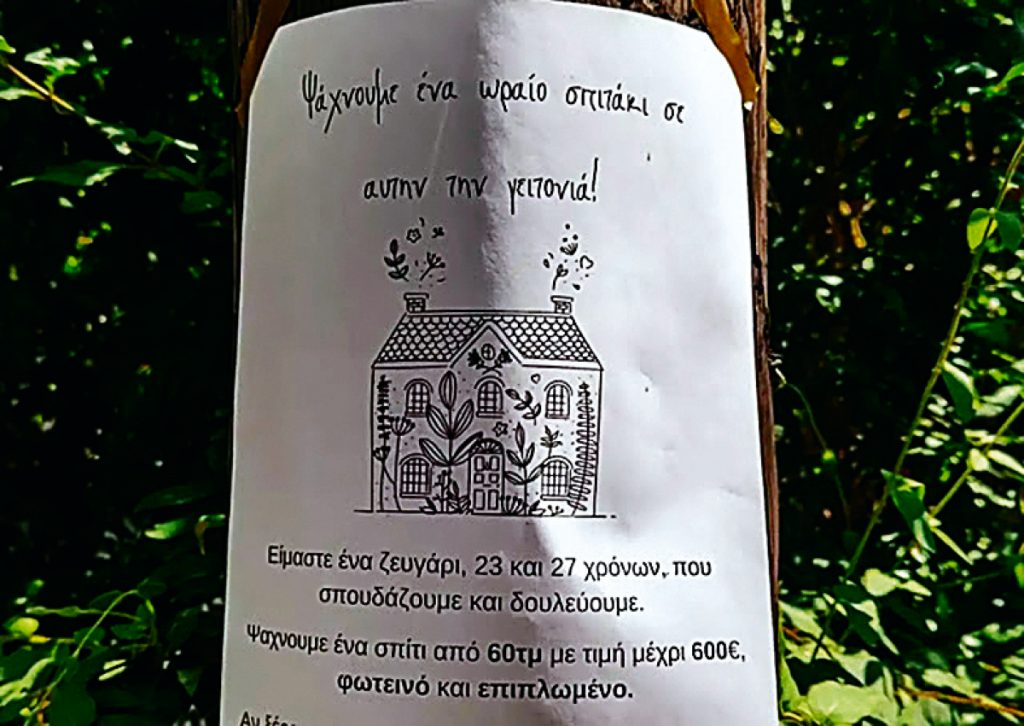 Ψάχνουμε ένα ωραίο σπιτάκι σε
αυτην την γειτονιά!
Είμαστε ένα ζευγάρι, 23 και 27 χρόνων, που
σπουδάζουμε και δουλεύουμε.
Ψαχνουμε ένα σπίτι από 60τμ με τιμή μέχρι 600€,
φωτεινό και επιπλωμένο.
Αν